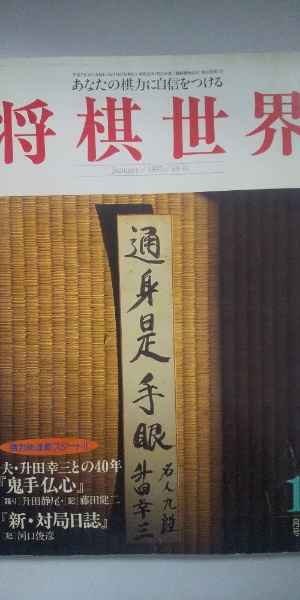 あなたの棋力に自信をつける
将棋世界
January／1995／n9-01
通身是手眼
名人九段
升田幸三
強力新連載スタート!!
夫・升田幸三との40年
『鬼手仏心』
升田静尾・
藤田健二
『新・対局日誌』
[記]河口俊彦
1
月号